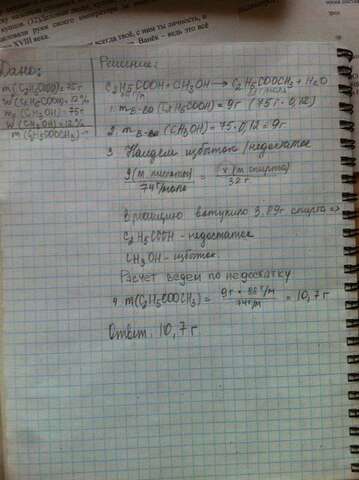 всегда твоё, с ним ты личность, а
XVIII века.
Ванёк – ведь это всё
Дано:
m(C₂H₅COOH)=75г
W(C₂H₅COOH)=12%
m₂(CH₃OH)=75г
W(CH₃OH)=12%
m(C₂H₅COOCH₃)-?
Решение:
C₂H₅COOH+CH₃OH → C₂H₅COOCH₃+H₂O
1. m в-ва (C₂H₅COOH)=9г (75г·0,12)
2. m в-ва (CH₃OH)=75·0,12=9г
3. Найдем избыток/недостаток
9(m кислоты)/74г/моль = x(m спирта)/32г
В реакцию вступило 3,89г спирта ⇒
C₂H₅COOH - недостаток
CH₃OH - избыток.
Расчет ведем по недостатку
4. m(C₂H₅COOCH₃)= 9г*88г/м / 74г/м = 10,7г
Ответ: 10,7г